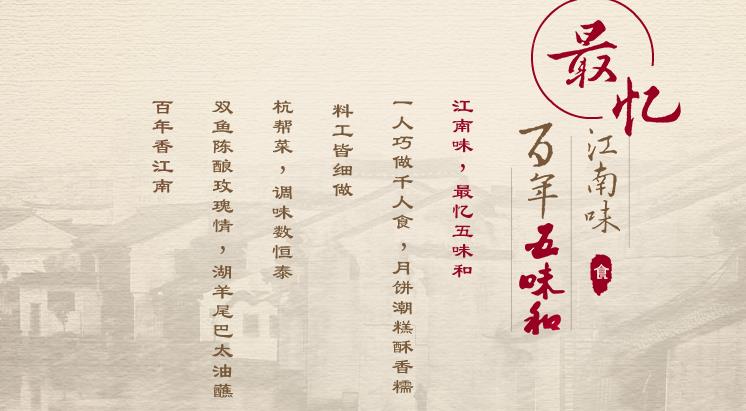 最忆
江南味
食
百年
五味和
江南味，最忆五味和
一人巧做千人食，月饼潮糕酥香糯
料工皆细做
杭帮菜，调味数恒泰
双鱼陈酿玫瑰情，湖羊尾巴太油蘸
百年香江南